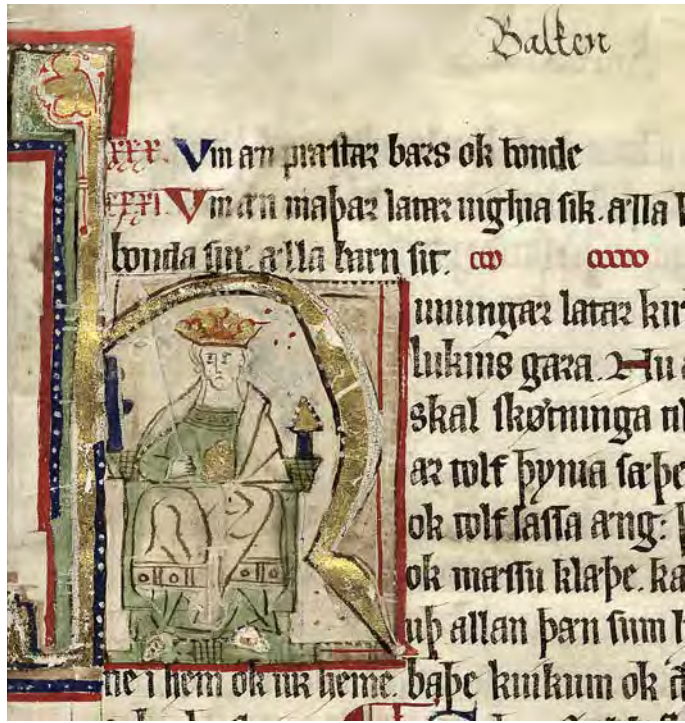 Balken
xxx. Vm an præstær bars ok bonde
xxxi. Vm æn maþær latær uighia sik. ælla
bonda sin. ælla barn sit.
unungær latær kir
lukius gæra. Nu
skal skøtninga til
ær tolf þynia sæþe
ok tolf lassa æng:
ok mæssu klæþe. ka
uþ allan þæn sum h
ne i hem ok ur heme. baþe kuikum ok d